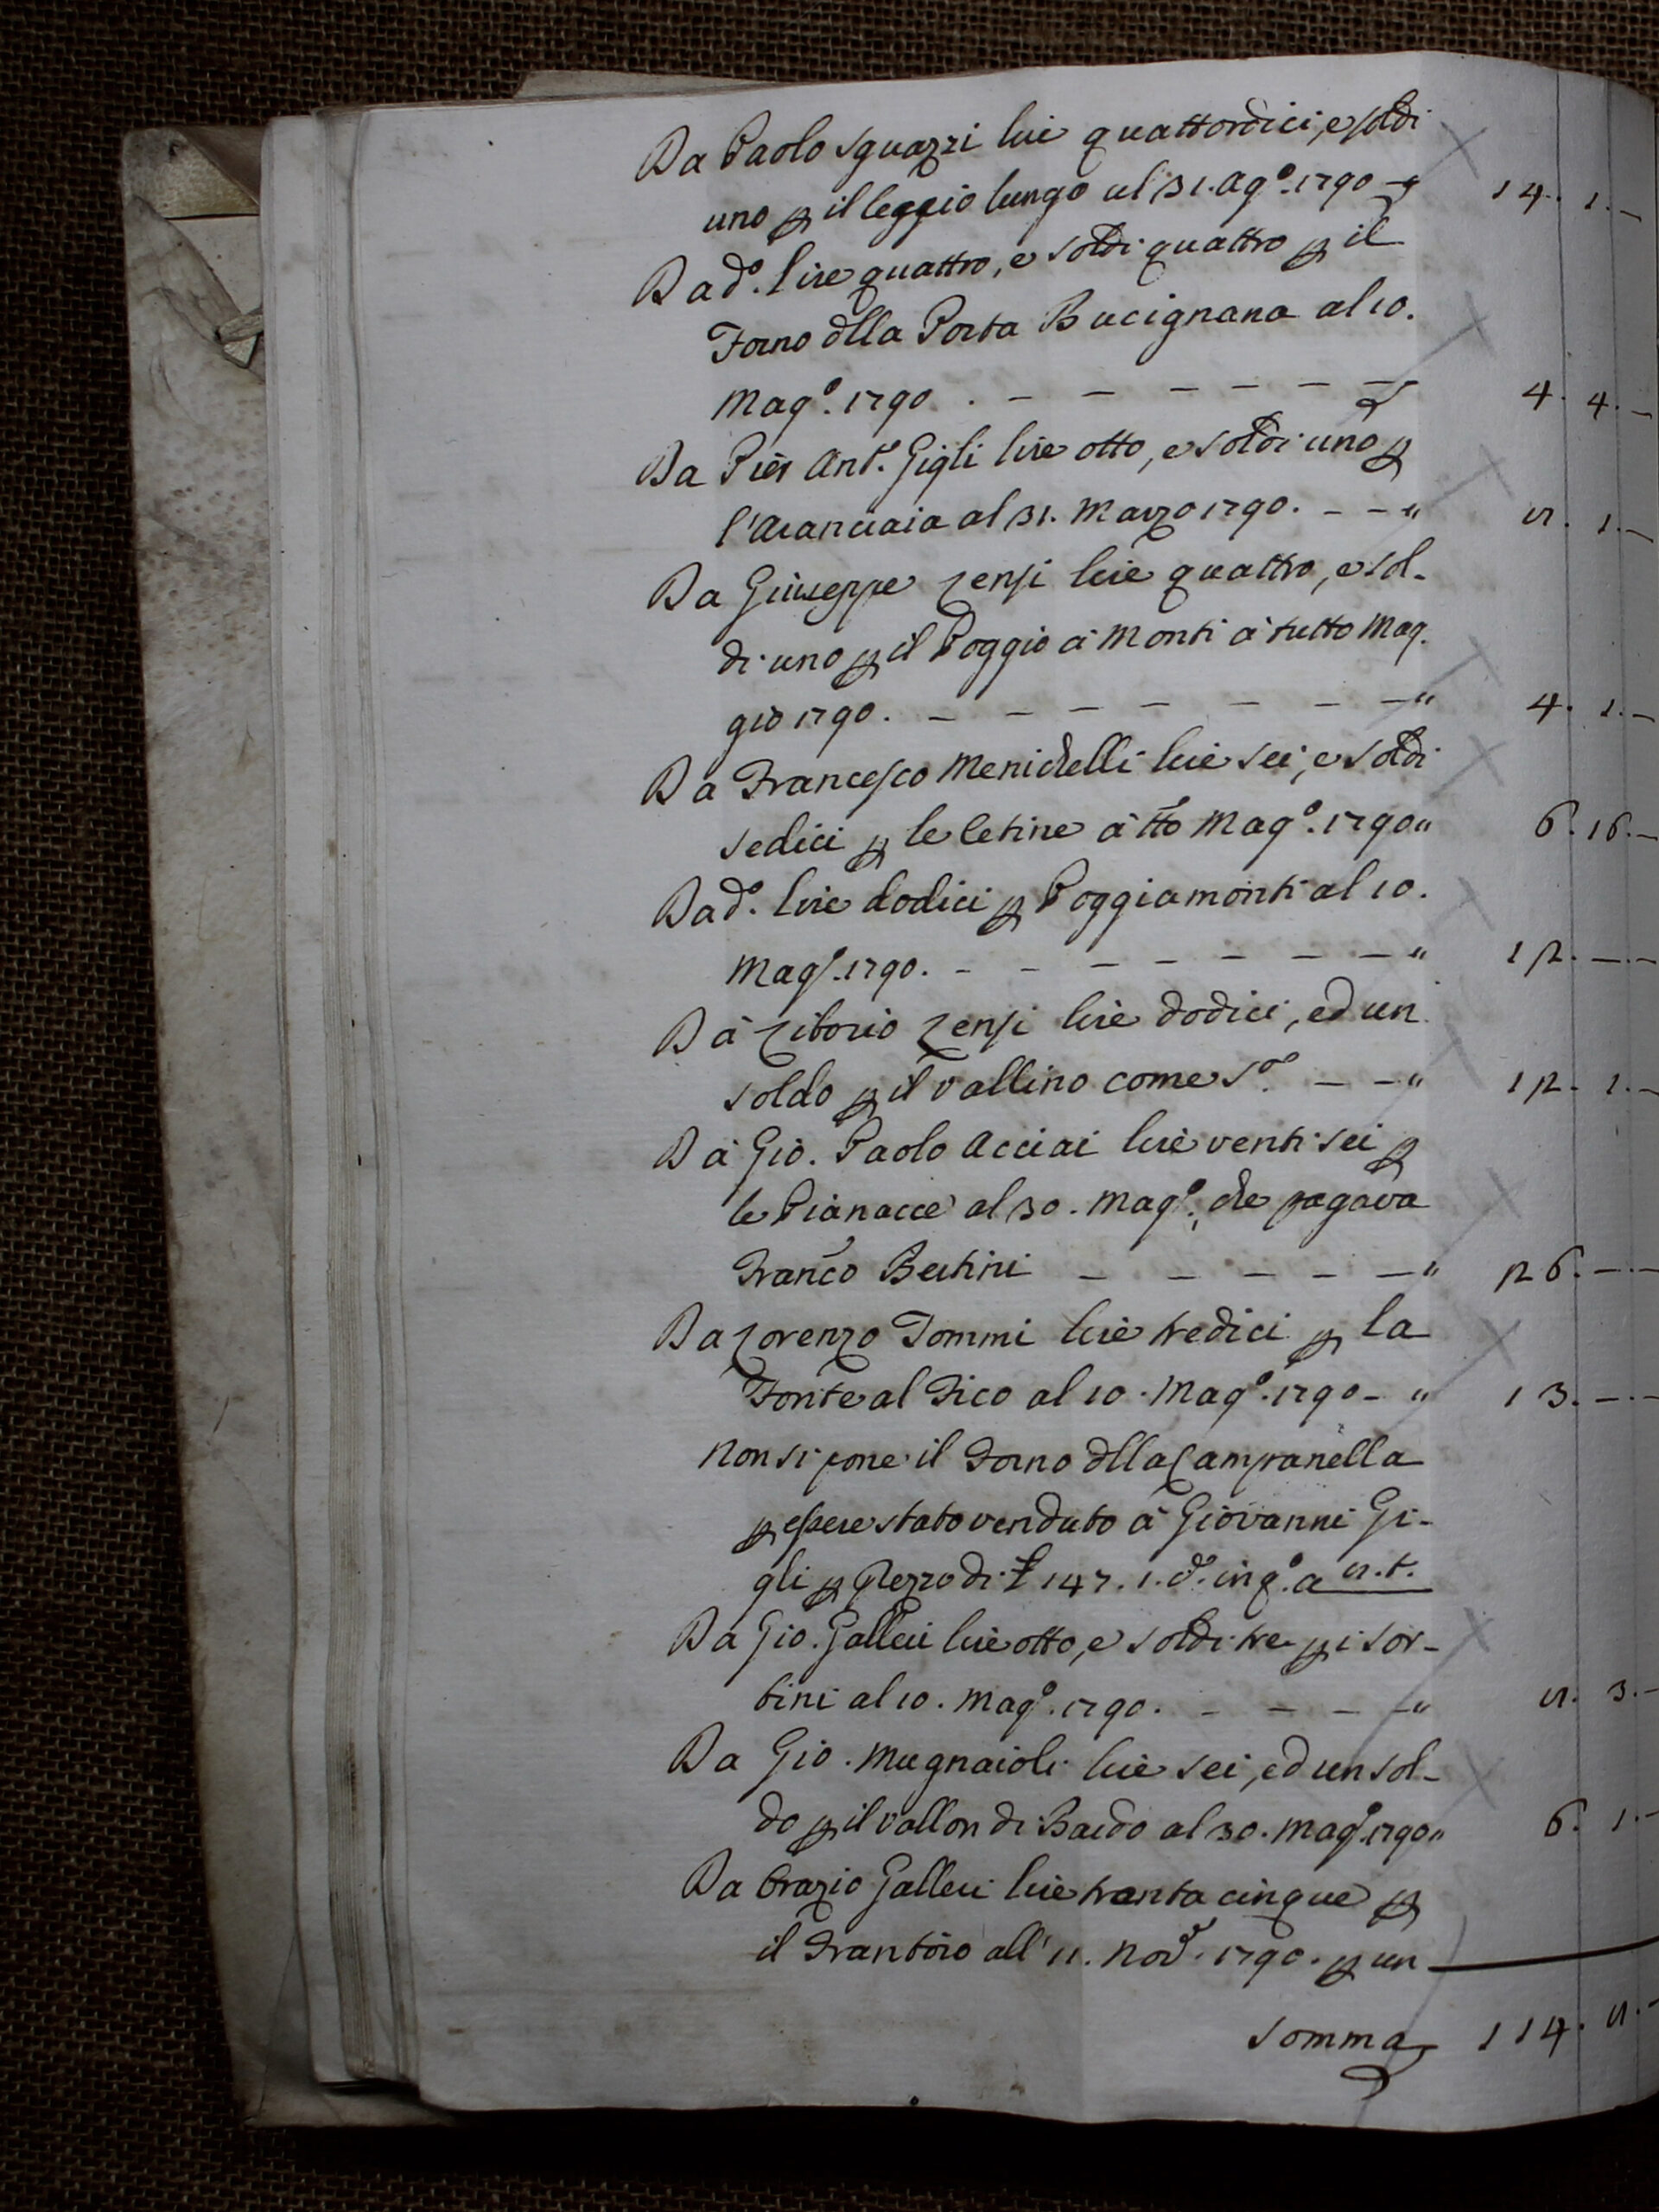 Da Paolo Sguazzi lire quattordici, e soldi
uno p il leggio lungo al 31. Ag.º 1790 " 14. 1. —
Da d.º lire quattro, e soldi quattro p il
Forno dlla Porta Bucignana al 10.
Mag.º 1790. — — — — — — — 4. 4. —
Da Pier Ant.º Gigli lire otto, e soldi uno p
l'Aranciaia al 31. Marzo 1790. — — " 8. 1. —
Da Giuseppe Lensi lire quattro, e sol-
di uno p il Poggio a Monti à tutto Mag-
gio 1790. — — — — — — — " 4. 1. —
Da Francesco Menichelli lire sei, e soldi
sedici p le Cetine à tto Mag.º 1790 " 6. 16. —
Da d.º lire dodici p Poggiamonti al 10.
Mag.º 1790. — — — — — — — " 12. —. —
Da Liborio Lensi lire dodici, ed un
soldo p il Vallino come s.ª — — " 12. 1. —
Da Gio. Paolo Acciai lire venti sei p
le Pianacce al 30. Mag.º, che pagava
Franco Bertini — — — — — " 26. —. —
Da Lorenzo Tommi lire tredici p la
Fonte al Fico al 10. Mag.º 1790 — " 13. —. —
Non si pone il Forno dlla Campanella
p essere stato venduto à Giovanni Gi-
gli p prezzo di £ 147. 1. d.
Da Gio. Galleri lire otto, e soldi tre p i Sor-
bini al 10. Mag.º 1790. — — — — " 8. 3. —
Da Gio. Mugnaioli lire sei, ed un sol-
do p il Vallon di Bardo al 30. Mag.º 1790 " 6. 1. —
Da Orazio Galleri lire trenta cinque p
il Frantoio all' 11. Nov.º 1790. p un
Somma 114. 8. —